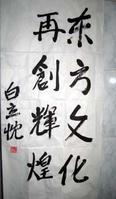 東方文化
再創輝煌
白立忱